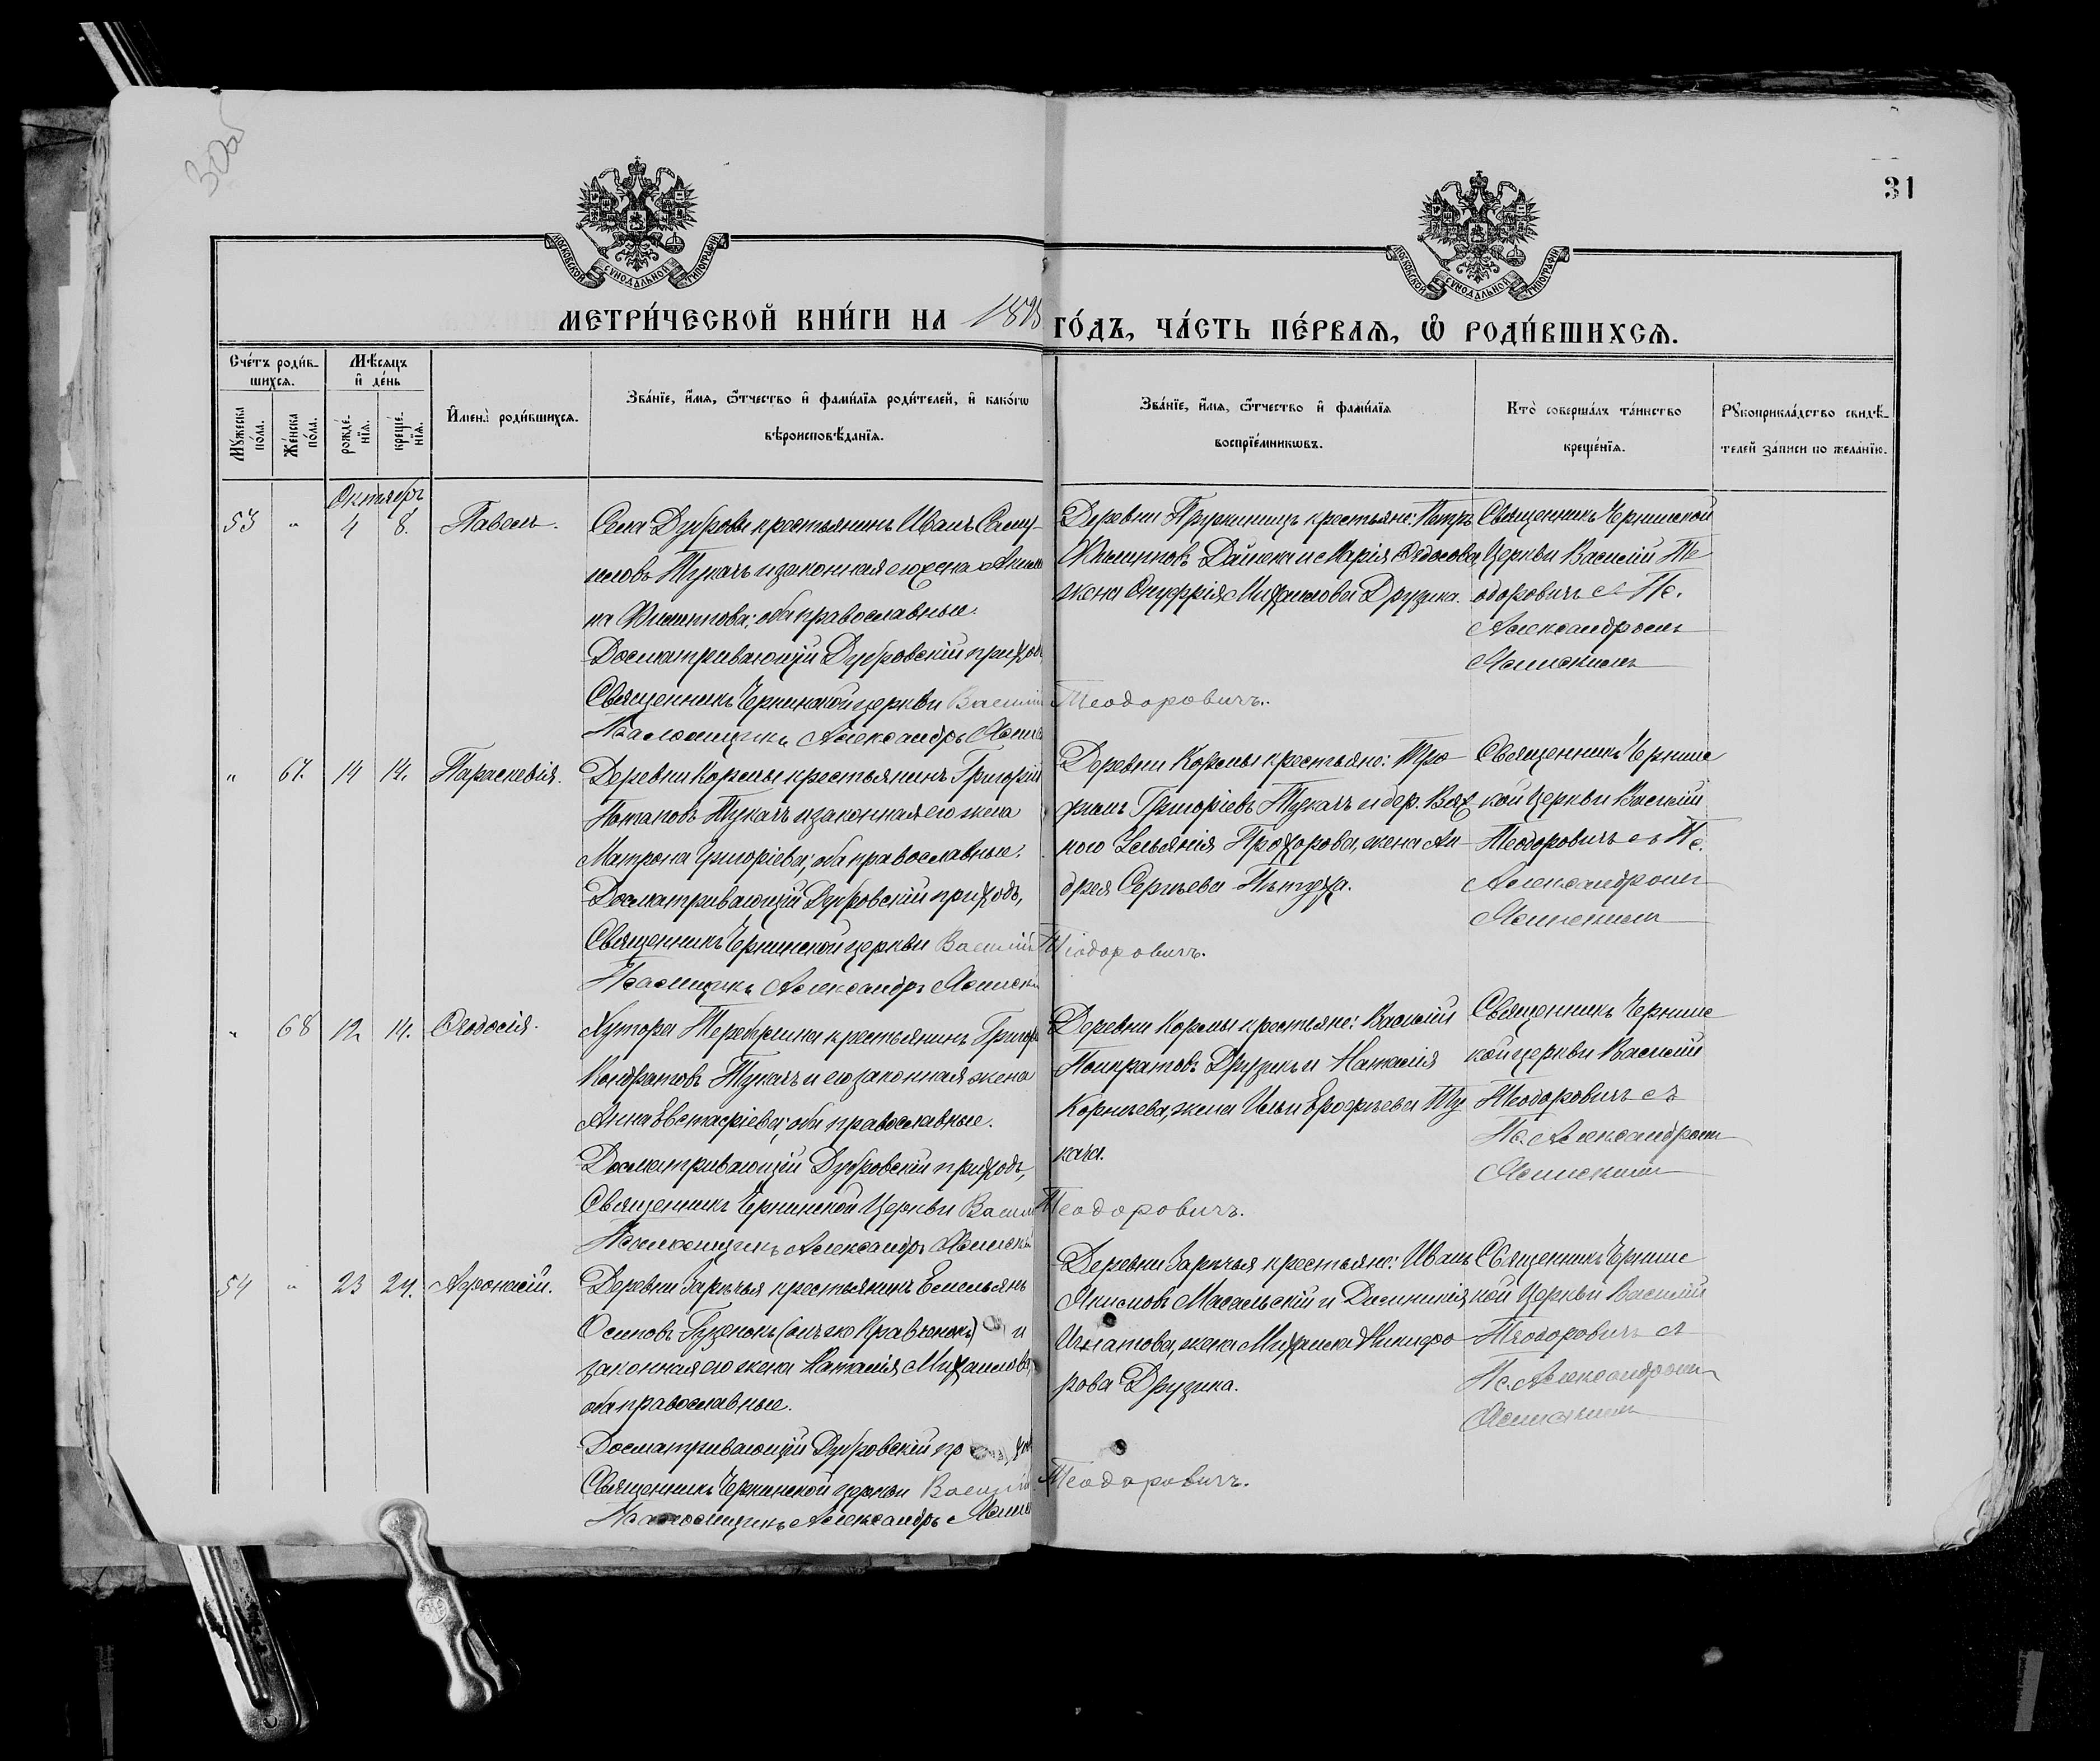 30об
31
МОСКОВСКОЙ СУНОДАЛЬНОЙ ТИПОГРАФІИ
МОСКОВСКОЙ СУНОДАЛЬНОЙ ТИПОГРАФІИ
МЕТРИ́ЧЕСКОЙ КНИ́ГИ НА 189
ГО́ДЪ, ЧА́СТЬ ПЕ́РВАѦ, Ѡ РОДИ́ВШИХСѦ.
Сче́тъ роди́в-
шихсѧ.
Мѣ́сѧцъ
и҆ де́нь
Мꙋ́жеска
по́ла.
Же́нска
по́ла.
рожде́-
нїѧ.
креще́-
нїѧ.
И҆мена̀ роди́вшихсѧ.
Зва́нїе, и҆́мѧ, ѻ҆́тчество и҆ фами́лїѧ роди́телей, и҆ како́гѡ
вѣроисповѣ́данїѧ.
Зва́нїе, и҆́мѧ, ѻ҆́тчество и҆ фами́лїѧ
воспрїе́мникѡвъ.
Кто̀ соверша́лъ та́инство
креще́нїѧ.
Рꙋкоприкла́дство свидѣ́-
телей за́писи по жела́нїю.
Октябрь
53 " 4 8. Павелъ.
Села Дубровы крестьянинъ Иванъ Саму-
иловъ Тукачъ и законная его жена
на Филиппова; оба православные.
Досматривающій Дубровскій приход
Священникъ Чернинской церкви Василій
Псаломщикъ Александръ
Деревни Пружиницъ крестьяне: Петръ
Филипповъ Дайнека и Марія Федосова,
жена Онуфрія Михаилова Друзика.
Теодоровичъ.
Священникъ Чернинской
Церкви Василій Те-
одоровичъ съ Пс.
Александромъ
" 67. 14 14. Параскевія.
Деревни Кормы крестьянинъ Григорій
Потаповъ Тукачъ и законная его жена
Матрона Григоріева; оба православные.
Досматривающій Дубровскій приходъ,
Священникъ Чернинской церкви Василій
Псаломщикъ Александръ
Деревни Кормы крестьяне: Тро-
фимъ Григоріевъ Тукачъ и дер. Вях
ного Ульянія Прохорова, жена Ан-
дрея Сергѣева Пѣтуха.
Теодоровичъ.
Священникъ Чернинс
кой Церкви Василій
Теодоровичъ съ Пс.
Александромъ
" 68 12 14. Ѳеодосія.
Хутора Теребулина крестьянинъ Григорій
Кондратовъ Тукачъ и его законная жена
Анна Евстафіева; оба православные.
Досматривающій Дубровскій приходъ,
Священникъ Чернинской Церкви Василій
Псаломщикъ Александръ
Деревни Кормы крестьяне: Василій
Понкратовъ Друзикъ и Наталія
Корнѣева, жена Ильи Ерофѣева Ту
кача.
Теодоровичъ.
Священникъ Чернинс
кой церкви Василій
Теодоровичъ съ
Пс. Александромъ
54 " 23 24. Афонасій.
Деревни Зарѣчья крестьянинъ Емельянъ
Осиповъ Гузенокъ (онъ же Кравченокъ) и
законная его жена Наталія Михаилова,
оба православные.
Досматривающій Дубровскій пр
Священникъ Чернинской церкви Василій
Псаломщикъ Александръ
Деревни Зарѣчья крестьяне: Иванъ
Якимовъ Масальскій и Доминикія
Игнатова, жена Михаила Никифо-
рова Друзика.
Теодоровичъ.
Священникъ Чернинс
кой Церкви Василій
Теодоровичъ съ
Пс. Александромъ